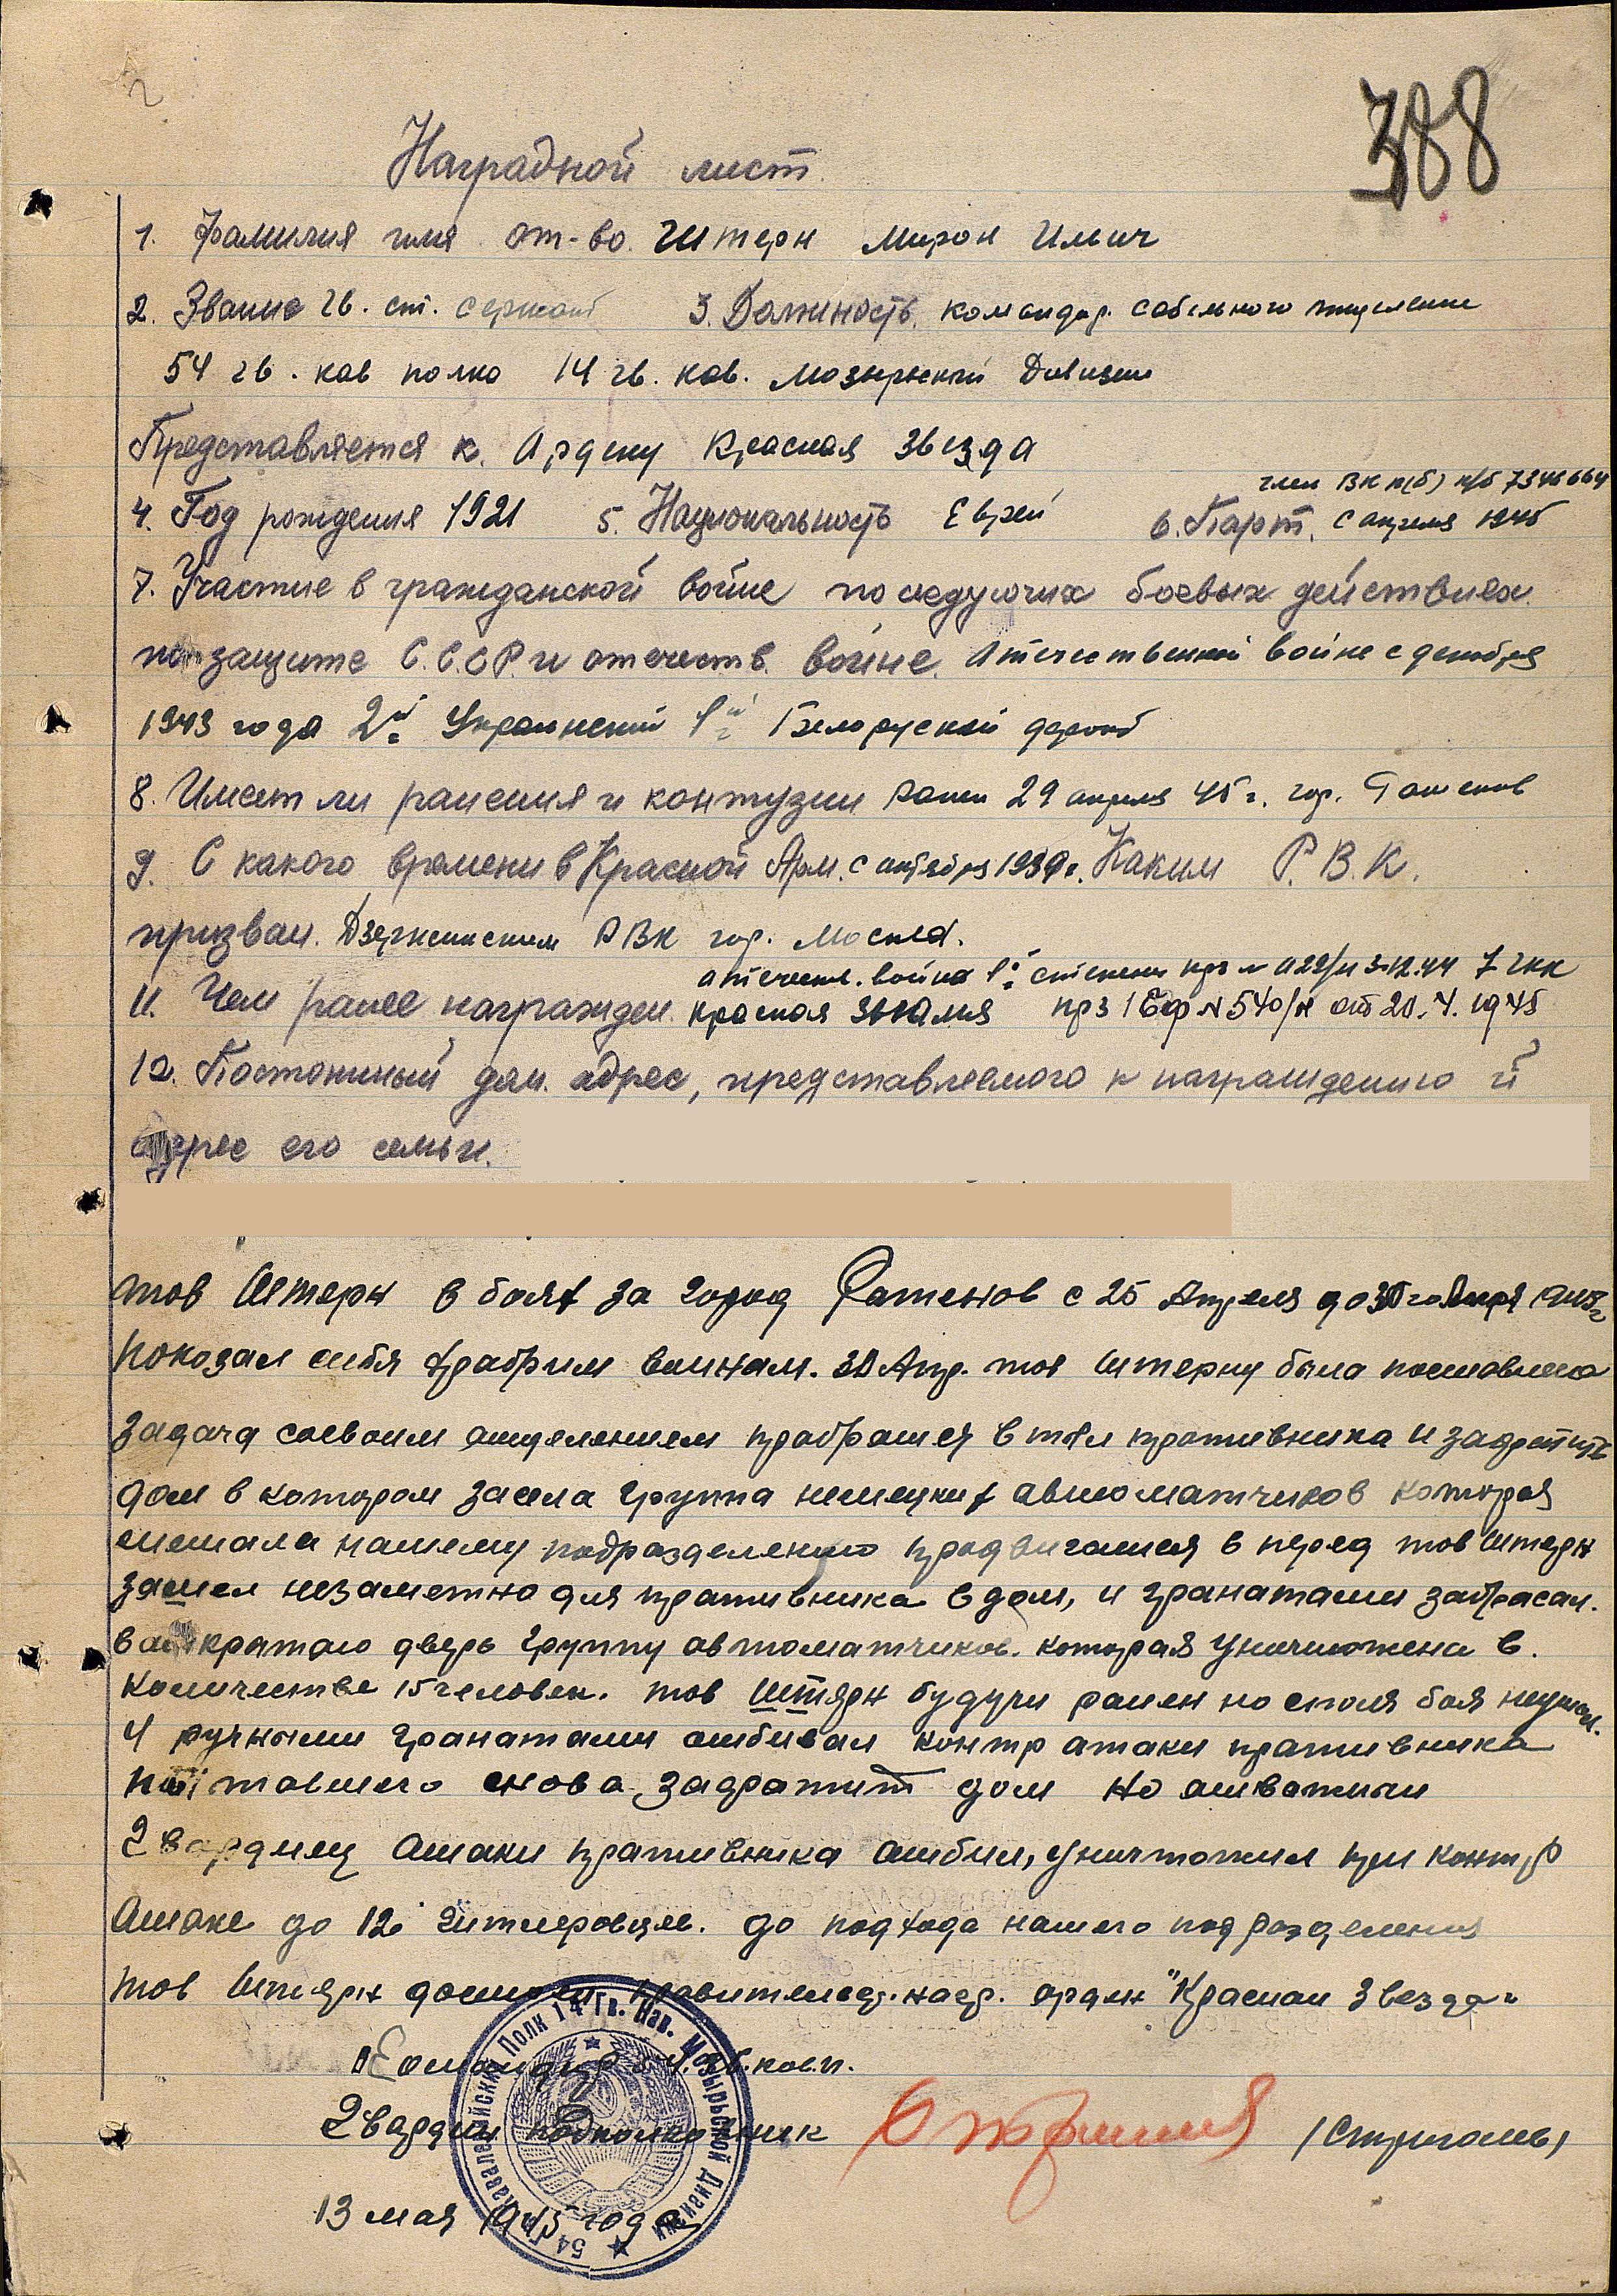 388
Наградной лист
1. Фамилия имя от-во. Штерн Мирон Ильич
2. Звание гв. ст. сержант 3. Должность. командир. сабельного отделения
54 гв. кав полка 14 гв. кав. Мозырьский Дивизии
Представляется к. Ордену Красная Звезда
член ВКП(б) п/б 7346664
4. Год рождения 1921 5. Национальность Еврей 6. Парт. с апреля 1945
7. Участие в гражданской войне последующих боевых действиях
по защите С.С.С.Р. и отечеств. войне. Отечественной войне с декабря
1943 года 2й Украинский 1й Белоруский фронт
8. Имеет ли ранения и контузии ранен 29 апреля 45 г. гор. Ратенов
9. С какого времени в Красной Арм. с октября 1939г. Каким Р.В.К.
призван. Дзержинским РВК гор. Москва.
отечеств. война 1й степени прз № 029/н 3.12.44 7 гкк
11. Чем ранее награжден. красная звезда прз 1 Бф № 540/н от 20.4.1945
12. Постоянный дом. адрес, представляемого к награждению и
адрес его семьи.
тов Штерн в боях за город Ратенов с 25 Апреля до 30го 1945г
показал себя храбрым воинам. 30 Апр. тов Штерну была поставлена
задача соевоим отделением пробратся в тыл противника и захватить
дом в котором засела группа немецких автоматчиков которая
мешала нашему подразделению продвигатся в перед тов Штерн
зашел незаметно для противника в дом, и гранатами забрасал.
в открытою дверь группу автоматчиков. которая уничтожена в.
количестве 15 человек. тов Штерн будучи ранен но споля боя неушел.
и ручными гранатами отбивал контр атаки противника
снова захватит дом но отважный
гвардиец атаки противника отбил, уничтожил при контр
Атаке до 12 гитлеровцев. до подхода нашего подразделения
тов Штерн достоен правительст. нагр. орден "Красная Звезда"
Командир 54 гв. кав.п.
Гвардии подполковник /Стригаль/
13 мая 1945 года
54 Гв. Кавалерийский Полк 14 Гв. Кав. Мозырьской Дивизии